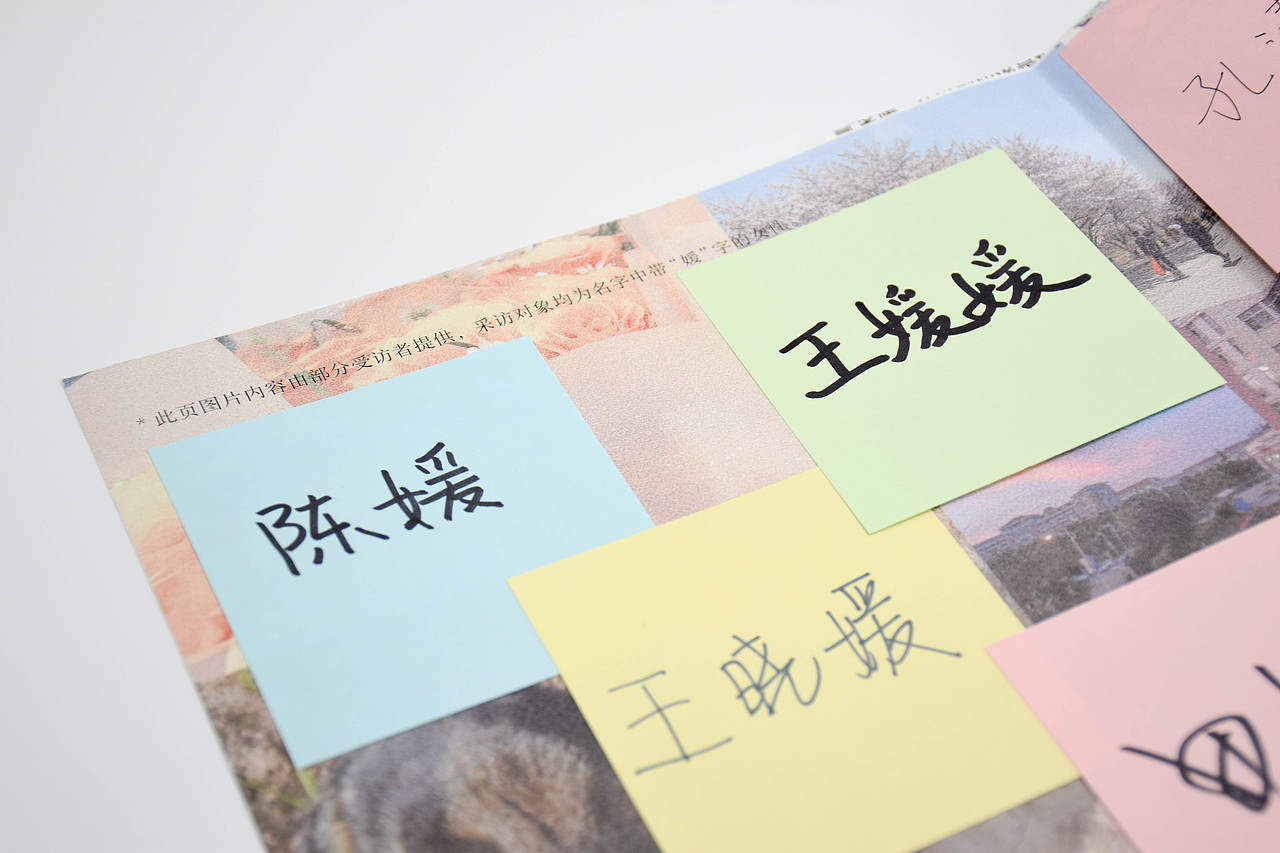 * 此页图片内容由部分受访者提供，采访对象均为名字中带“媛”字的女性
王媛媛
陈媛
王晓媛
孔